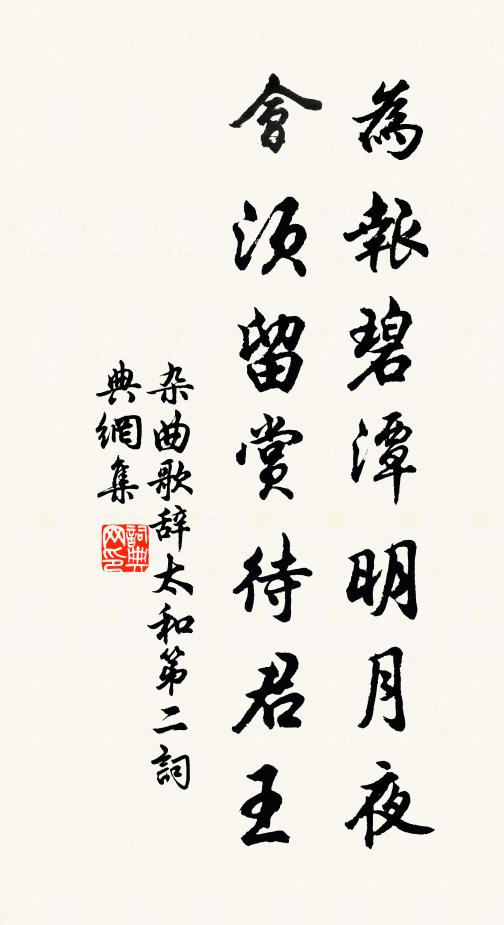 為報碧潭明月夜
會須留賞待君王
杂曲歌辞太和第二詞
典網集
詞典網印